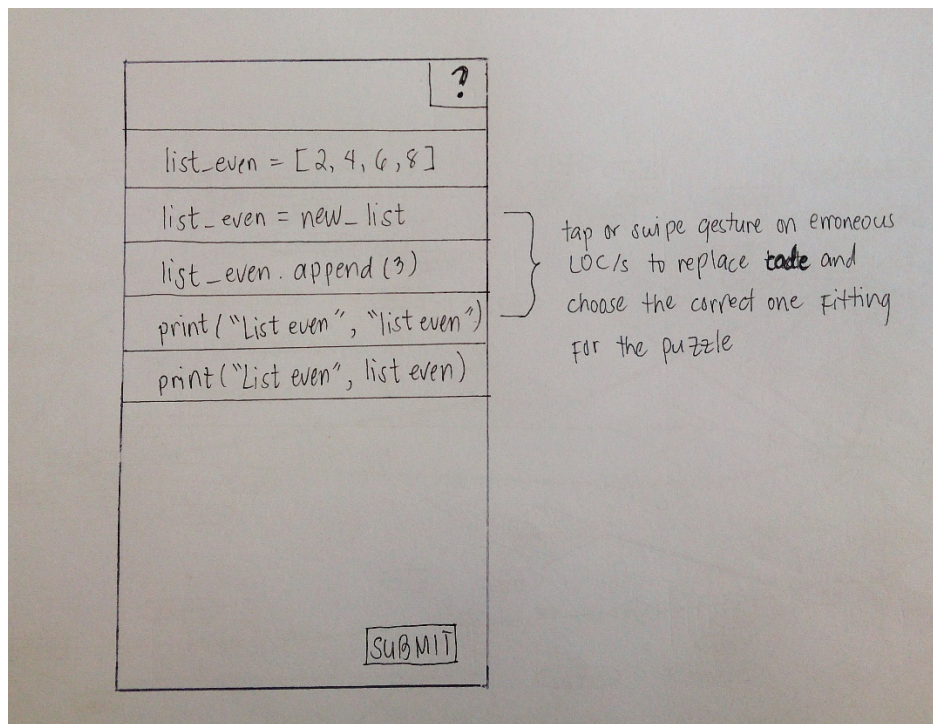 ?
list_even = [2, 4, 6, 8]
list_even = new_list
list_even. append (3)
print ("List even", "list even")
print ("List even", list even)
tap or swipe gesture on erroneous
LOC/s to replace and
choose the correct one fitting
for the puzzle
SUBMIT